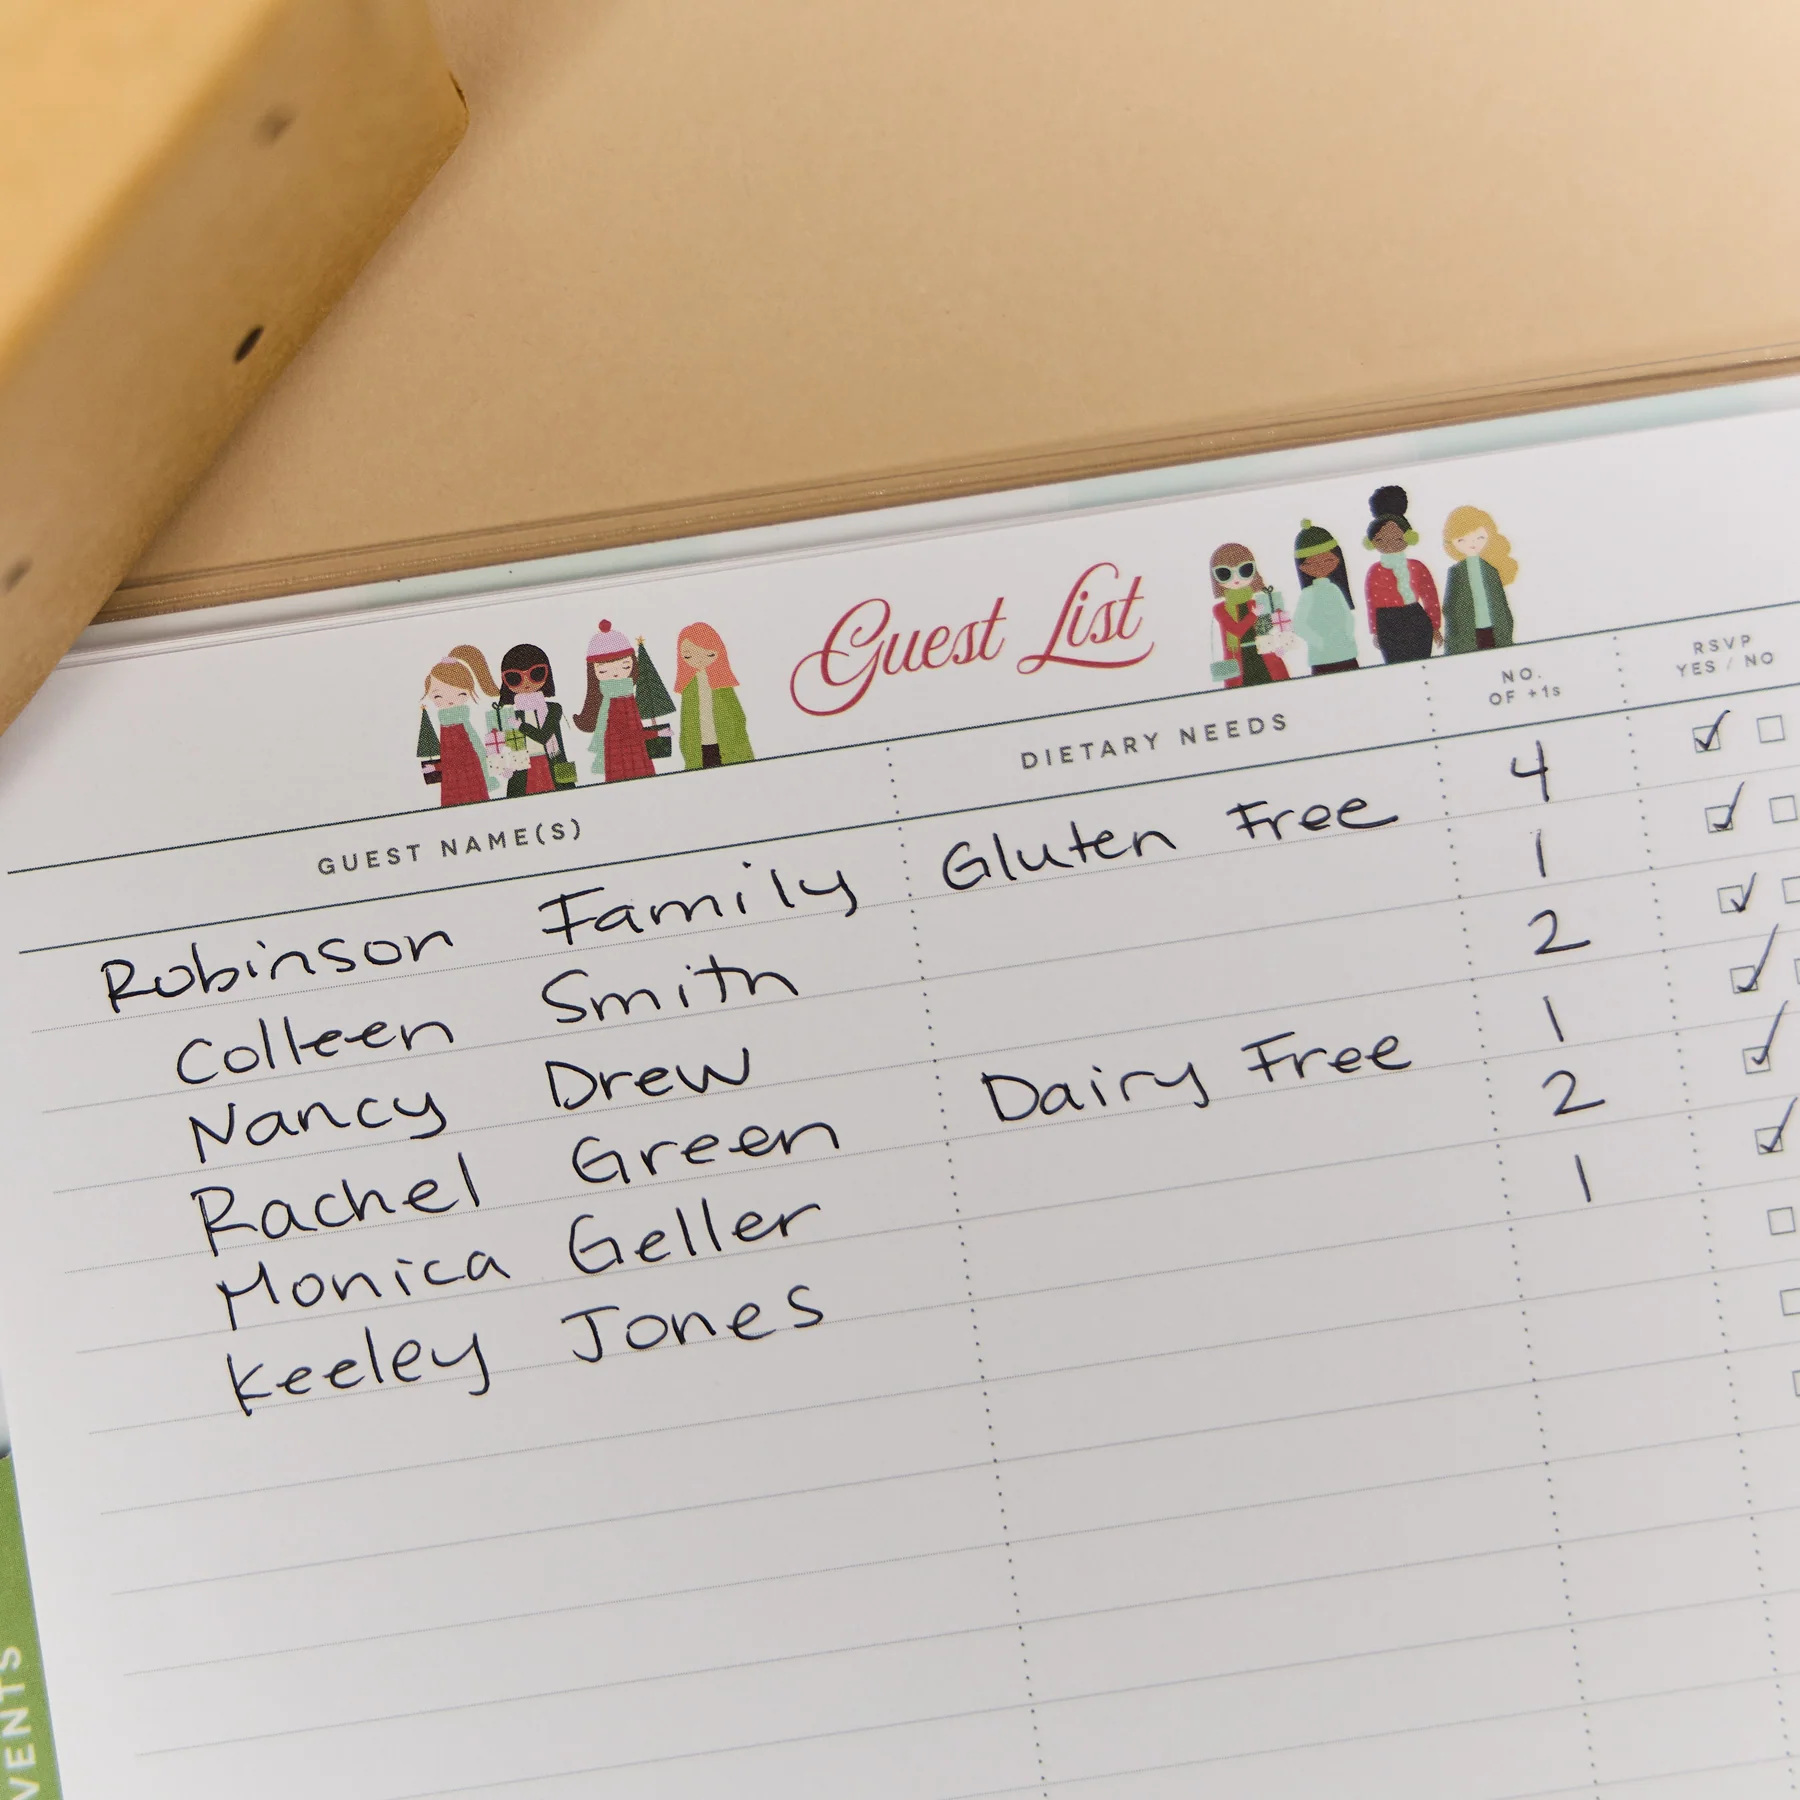 Guest List
GUEST NAME(S) DIETARY NEEDS NO. OF +1s RSVP YES / NO
Robinson Family Gluten Free 4
Colleen Smith 1
Nancy Drew 2
Rachel Green Dairy Free 1
Monica Geller 2
Keeley Jones 1
VENTS